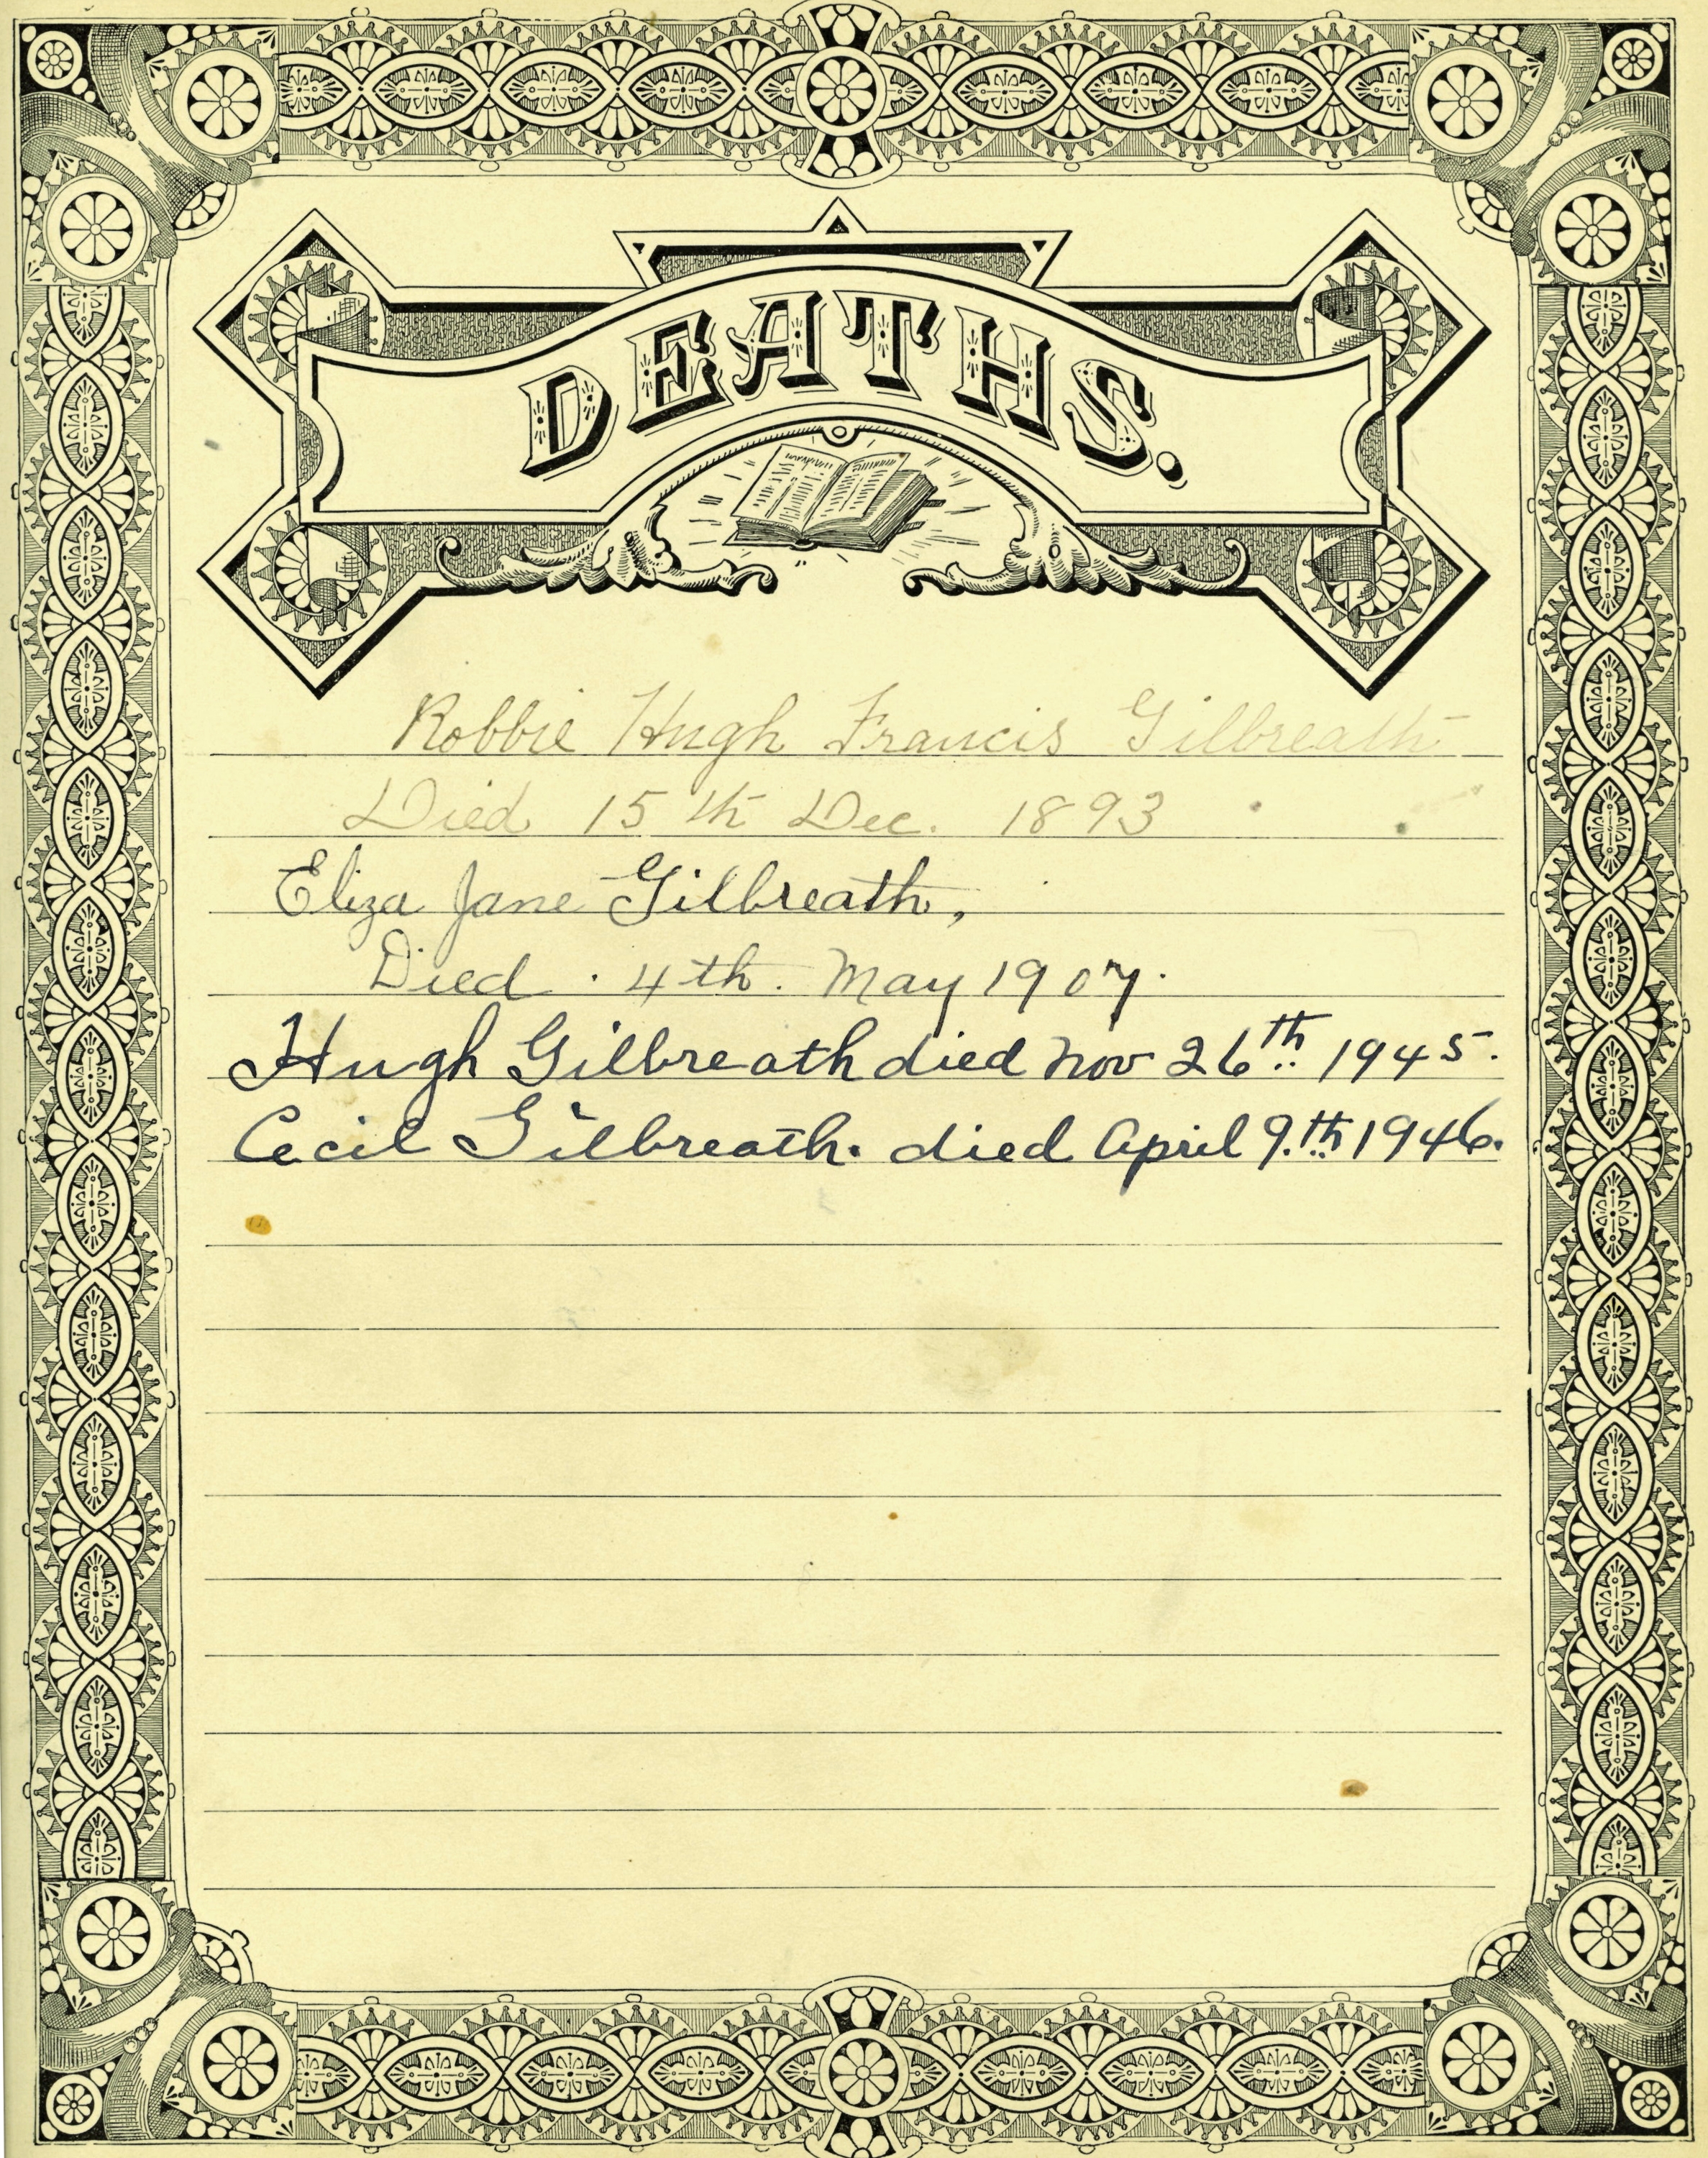 DEATHS.
Robbie Hugh Francis Gilbreath
Died 15th Dec. 1893
Eliza Jane Gilbreath,
Died. 4th. May 1907.
Hugh Gilbreath died Nov 26th 1945.
Cecil Gilbreath. died April 9.th 1946.